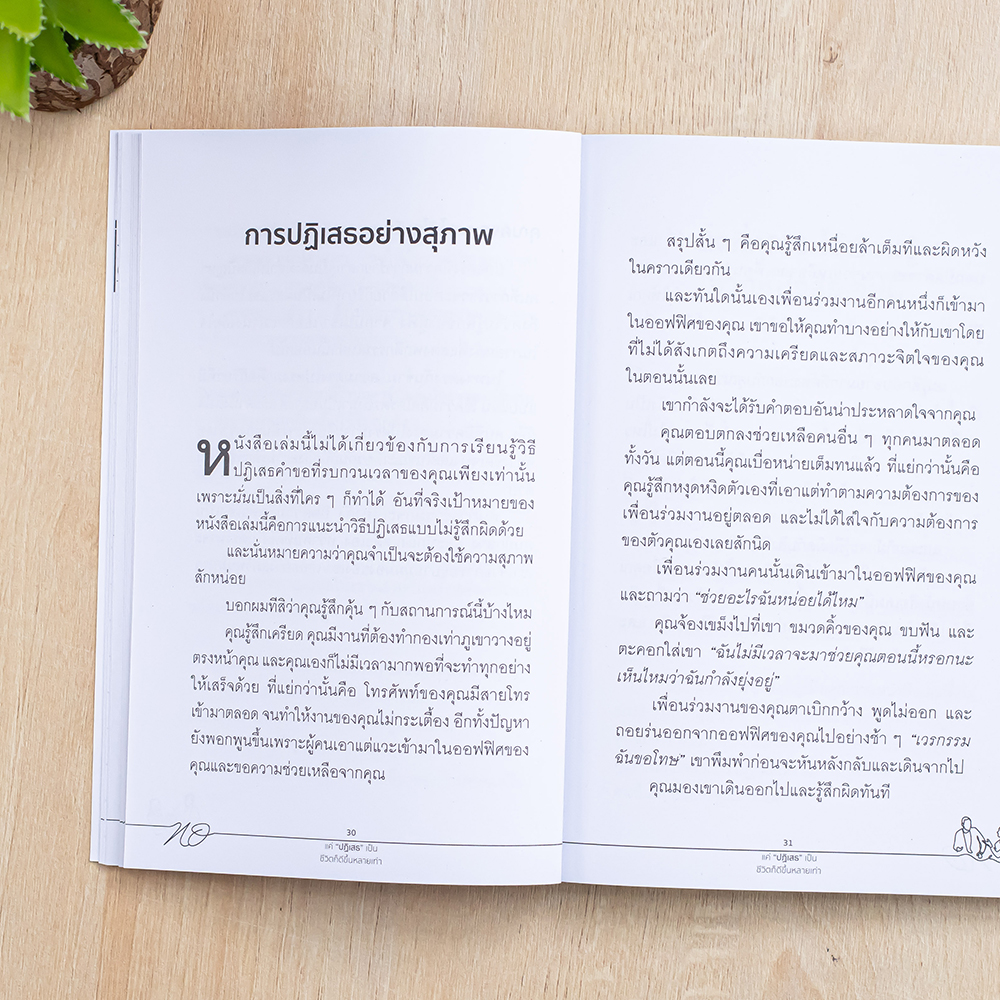 การปฏิเสธอย่างสุภาพ
หนังสือเล่มนี้ไม่ได้เกี่ยวข้องกับการเรียนรู้วิธี
ปฏิเสธคำขอที่รบกวนเวลาของคุณเพียงเท่านั้น
เพราะนั่นเป็นสิ่งที่ใคร ๆ ก็ทำได้ อันที่จริงเป้าหมายของ
หนังสือเล่มนี้คือการแนะนำวิธีปฏิเสธแบบไม่รู้สึกผิดด้วย
และนั่นหมายความว่าคุณจำเป็นจะต้องใช้ความสุภาพ
สักหน่อย
บอกผมทีสิว่าคุณรู้สึกคุ้น ๆ กับสถานการณ์นี้บ้างไหม
คุณรู้สึกเครียด คุณมีงานที่ต้องทำกองเท่าภูเขาวางอยู่
ตรงหน้าคุณ และคุณเองก็ไม่มีเวลามากพอที่จะทำทุกอย่าง
ให้เสร็จด้วย ที่แย่กว่านั้นคือ โทรศัพท์ของคุณมีสายโทร
เข้ามาตลอด จนทำให้งานของคุณไม่กระเตื้อง อีกทั้งปัญหา
ยังพอกพูนขึ้นเพราะผู้คนเอาแต่แวะเข้ามาในออฟฟิศของ
คุณและขอความช่วยเหลือจากคุณ
no
30
แค่ "ปฏิเสธ" เป็น
ชีวิตก็ดีขึ้นหลายเท่า
สรุปสั้น ๆ คือคุณรู้สึกเหนื่อยล้าเต็มทีและผิดหวัง
ในคราวเดียวกัน
และทันใดนั้นเองเพื่อนร่วมงานอีกคนหนึ่งก็เข้ามา
ในออฟฟิศของคุณ เขาขอให้คุณทำบางอย่างให้กับเขาโดย
ที่ไม่ได้สังเกตถึงความเครียดและสภาวะจิตใจของคุณ
ในตอนนั้นเลย
เขากำลังจะได้รับคำตอบอันน่าประหลาดใจจากคุณ
คุณตอบตกลงช่วยเหลือคนอื่น ๆ ทุกคนมาตลอด
ทั้งวัน แต่ตอนนี้คุณเบื่อหน่ายเต็มทนแล้ว ที่แย่กว่านั้นคือ
คุณรู้สึกหงุดหงิดตัวเองที่เอาแต่ทำตามความต้องการของ
เพื่อนร่วมงานอยู่ตลอด และไม่ได้ใส่ใจกับความต้องการ
ของตัวคุณเองเลยสักนิด
เพื่อนร่วมงานคนนั้นเดินเข้ามาในออฟฟิศของคุณ
และถามว่า "ช่วยอะไรฉันหน่อยได้ไหม"
คุณจ้องเขม็งไปที่เขา ขมวดคิ้วของคุณ ขบฟัน และ
ตะคอกใส่เขา "ฉันไม่มีเวลาจะมาช่วยคุณตอนนี้หรอกนะ
เห็นไหมว่าฉันกำลังยุ่งอยู่"
เพื่อนร่วมงานของคุณตาเบิกกว้าง พูดไม่ออก และ
ถอยร่นออกจากออฟฟิศของคุณไปอย่างช้า ๆ "เวรกรรม
ฉันขอโทษ" เขาพึมพำก่อนจะหันหลังกลับและเดินจากไป
คุณมองเขาเดินออกไปและรู้สึกผิดทันที
31
แค่ "ปฏิเสธ" เป็น
ชีวิตก็ดีขึ้นหลายเท่า